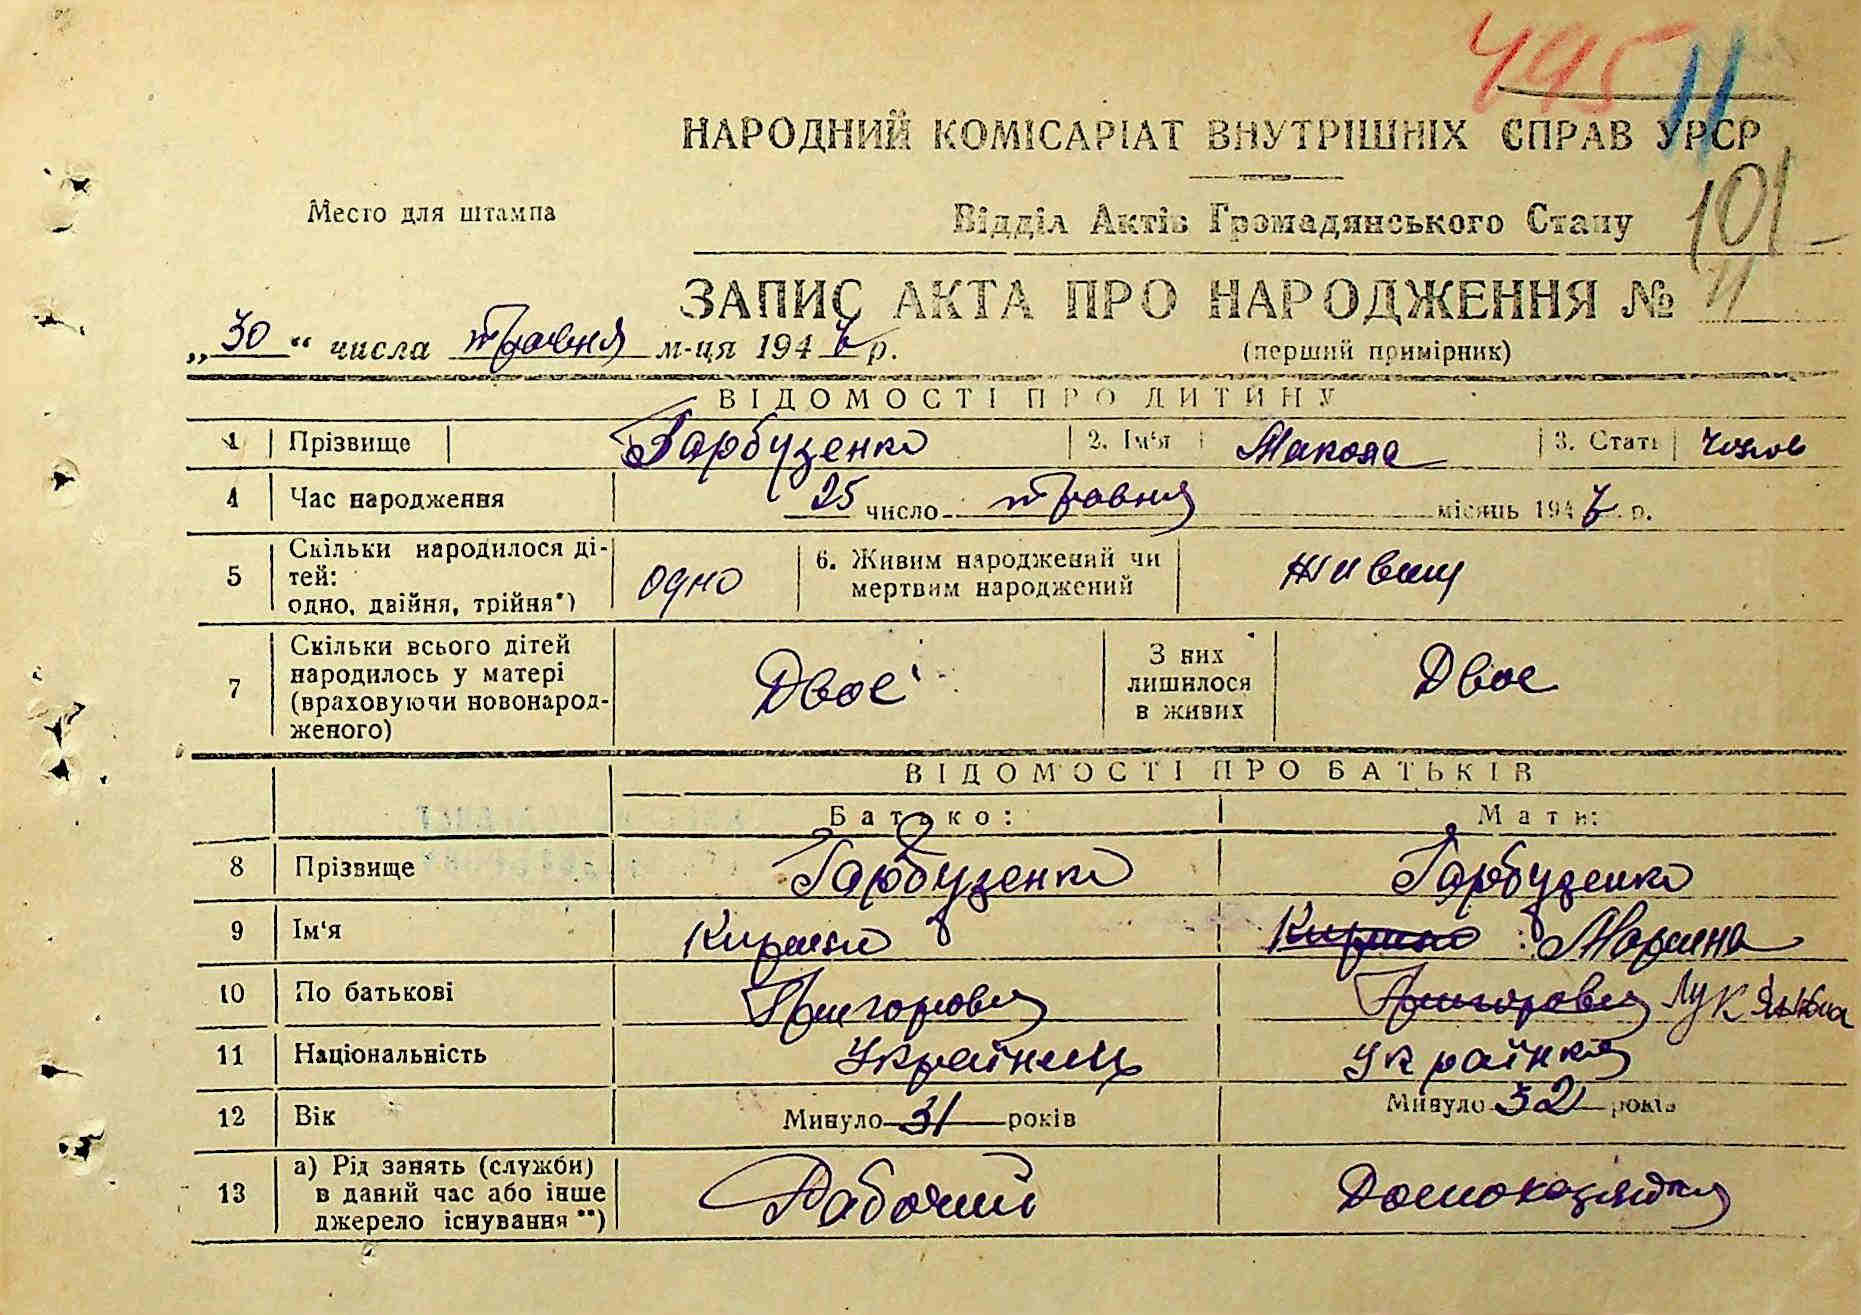 495 11
НАРОДНИЙ КОМІСАРІАТ ВНУТРІШНІХ СПРАВ УРСР
Место для штампа
Відділ Актів Громадянського Стану
101
ЗАПИС АКТА ПРО НАРОДЖЕННЯ № 11
„30“ числа травня м-ця 1947 р.
(перший примірник)
ВІДОМОСТІ ПРО ДИТИНУ
1 Прізвище Гарбузенко 2. Ім'я Микола 3. Стать чолов
4 Час народження 25 число травня місяць 1947 р.
5 Скільки народилося ді-
тей:
одно, двійня, трійня*) одно
6. Живим народжений чи
мертвим народжений живим
7 Скільки всього дітей
народилось у матері
(враховуючи новонарод-
женого) Двоє
З них
лишилося
в живих Двоє
ВІДОМОСТІ ПРО БАТЬКІВ
Батько: Мати:
8 Прізвище Гарбузенко Гарбузенко
9 Ім'я Марина
10 По батькові Григорович Григорович Лук'янівна
11 Національність Українець Українка
12 Вік Минуло 31 років Минуло 32 років
13 а) Рід занять (служби)
в даний час або інше
джерело існування **) Рабочий Домохазяйка